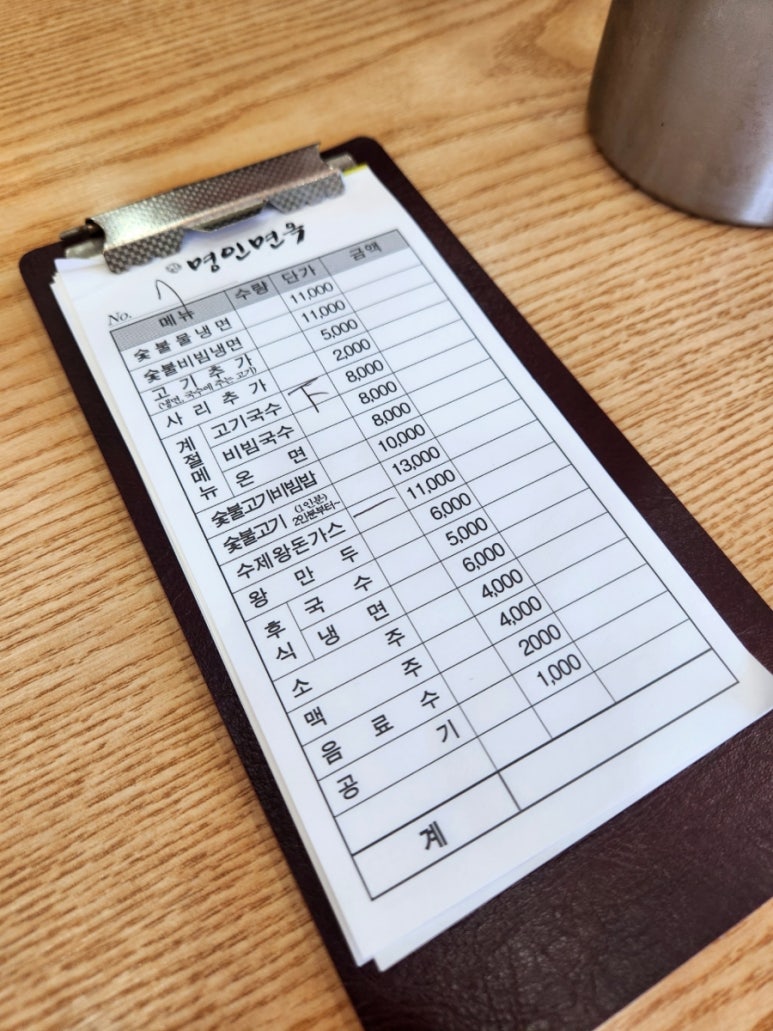 명인면옥
No. 7
메뉴 수량 단가 금액
숯불물냉면 11,000
숯불비빔냉면 11,000
고기추가 5,000
(냉면, 국수에 주는 고기)
사리추가 2,000
계절메뉴
고기국수 丅 8,000
비빔국수 8,000
온면 8,000
숯불고기비빔밥 10,000
숯불고기 (1인분) 2인분부터~ 13,000
수제왕돈가스 一 11,000
왕만두 6,000
후식
국수 5,000
냉면 6,000
소주 4,000
맥주 4,000
음료수 2000
공기 1,000
계